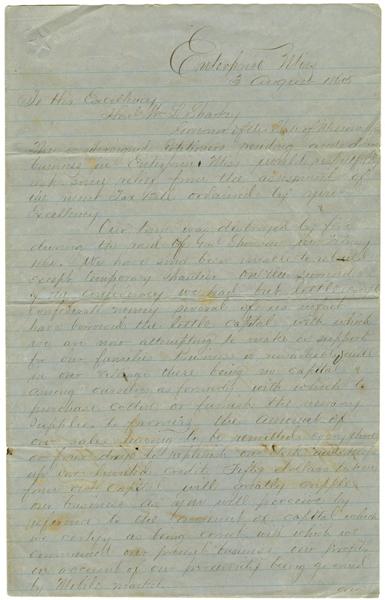 Enterprise Miss
3 August 1865
To His Excellency
Hon Wm L Sharkey
Governor of the State of Mississippi
The undersigned Petitioners residing and doing
business in Enterprise Miss would respectfully
ask some relief from the assessment of
the recent Tax Code ordained by your
Excellency
Our town was destroyed by fire
during the raid of Genl Sherman in February
1864. We have since been unable to rebuild
except temporary shanties. On the surrender
of the Confederacy we had but little except
Confederate money several of us in fact
have borrowed the little capital with which
we are now attempting to make a support
for our families Business is remarkably
in our village there being no capital
among ourselves as formerly with which to
purchase cotton or furnish the necessary
supplies to farmers, the amount of
our sales having to be remitted
to replenish our stock and keep
up our limited credit Fifty dollars taken
from our capital will greatly cripple
our business as you will perceive by
reference to the amount of capital which
we certify as being correct with which we
commenced our present business our profits
on account of our proximity being governed
by Mobile market
over